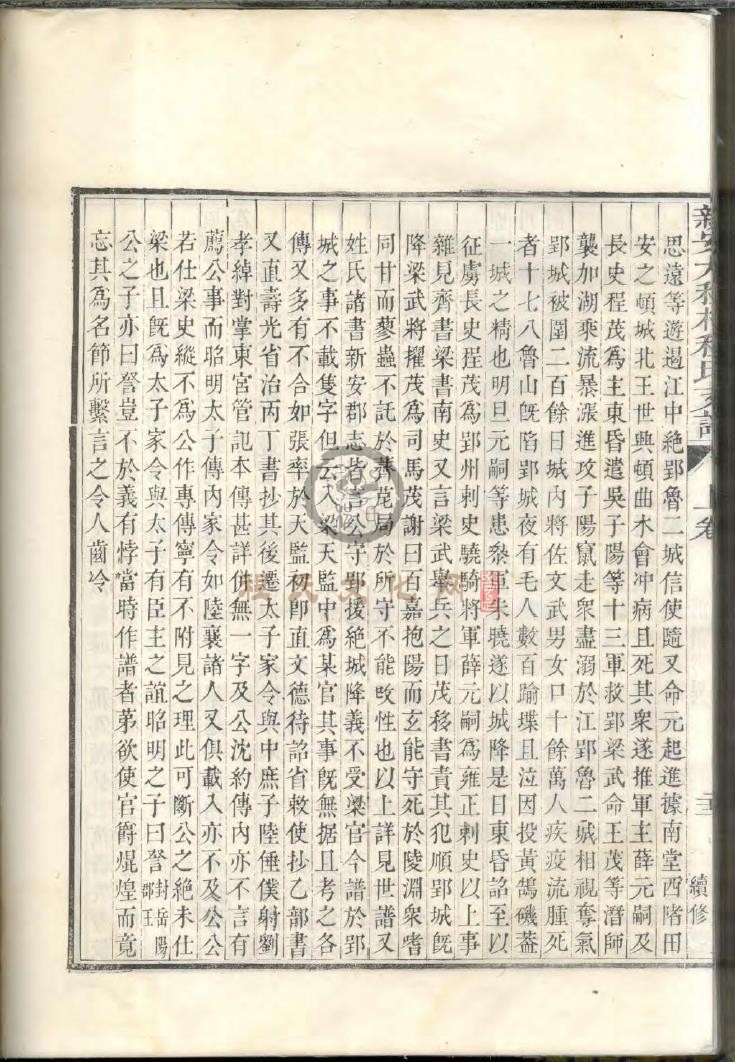 思遠等遊遏江中絕郢魯二城信使隨又命元起進據南堂西陼田
安之頓城北王世興頓曲木會冲病且死其衆遂推軍主薛元嗣及
長史程茂爲主東昏遣吳子陽等十三軍救郢梁武命王茂等潛師
襲加湖乘流暴漲進攻子陽竄走衆盡溺於江郢魯二城相視奪氣
郢城被圍二百餘日城內將佐文武男女口十餘萬人疾疫流腫死
者十七八魯山旣陷郢城夜有毛人數百踰堞且泣因投黃鵠磯葢
一城之精也明旦元嗣等患叅軍朱曉遂以城降是日東昏詔至以
征虜長史程茂爲郢州刺史驍騎將軍薛元嗣爲雍正刺史以上事
雜見齊書梁書南史又言梁武舉兵之日茂移書責其犯順郢城旣
降梁武將擢茂爲司馬茂謝曰百嘉抱陽而玄能守死於陵淵衆嗜
同甘而蓼蟲不託於薺苨局於所守不能攺性也以上詳見世譜又
姓氏諸書新安郡志皆言公守郢援絕城降義不受梁官今譜於郢
城之事不載隻字但云入梁天監中爲某官其事旣無据且考之各
傳又多有不合如張率於天監初卽直文德待詔省敕使抄乙部書
又直壽光省治丙丁書抄其後遷太子家令與中庶子陸倕僕射劉
孝綽對掌東宮管記本傳甚詳併無一字及公沈約傳內亦不言有
薦公事而昭明太子傳內家令如陸襄諸人又俱載入亦不及公公
若仕梁史縱不爲公作專傳寧有不附見之理此可斷公之絕未仕
梁也且旣爲太子家令與太子有臣主之誼昭明之子曰詧封岳陽郡王
公之子亦曰詧豈不於義有悖當時作譜者苐欲使官爵焜煌而竟
忘其爲名節所繫言之令人齒冷
上卷
續修